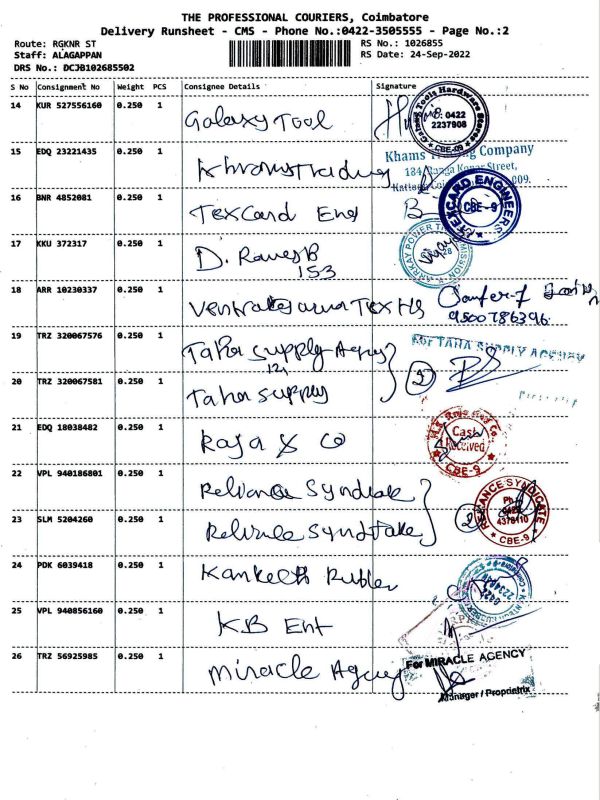 THE PROFESSIONAL COURIERS, Coimbatore
Delivery Runsheet - CMS - Phone No.:0422-3505555 - Page No.:2
Route: RGKNR ST
RS No.: 1026855
Staff: ALAGAPPAN
RS Date: 24-Sep-2022
DRS No.: DCJB102685502
S No Consignment No Weight PCS Consignee Details Signature
14 KUR 527556160 0.250 1 Galaxy Tool
Tools Hardware
0422
2237908
CBE-09
15 EDQ 23221435 0.250 1
Khams Trading Company
184, Ranga Konar Street,
16 BNR 4852081 0.250 1 Texcard Eng
TEXCARD ENGINEERS
CBE-9
17 KKU 372317 0.250 1 D. Ramesh B
153
18 ARR 10230337 0.250 1
9500786396
19 TRZ 320067576 0.250 1 Taha Supply Agency
For TAHA SUPPLY AGENCY
121
20 TRZ 320067581 0.250 1 Taha Supply
2
21 EDQ 18038482 0.250 1 Raja & Co
Cash
Received
CBE-9
22 VPL 940186801 0.250 1 Reliance Syndicate
RELIANCE SYNDICATE
Ph
0422
4378110
CBE-9
23 SLM 5204260 0.250 1
2
24 PDK 6039418 0.250 1
25 VPL 940856160 0.250 1 KB Ent
26 TRZ 56925985 0.250 1 Miracle Agency
For MIRACLE AGENCY
Manager / Proprietrix